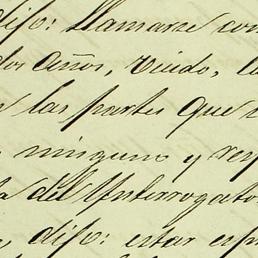 dijo: Llamarse com
dos Años, Viudo, la
n las partes que
ninguno y res
la del Ynterrogato
dijo: estar